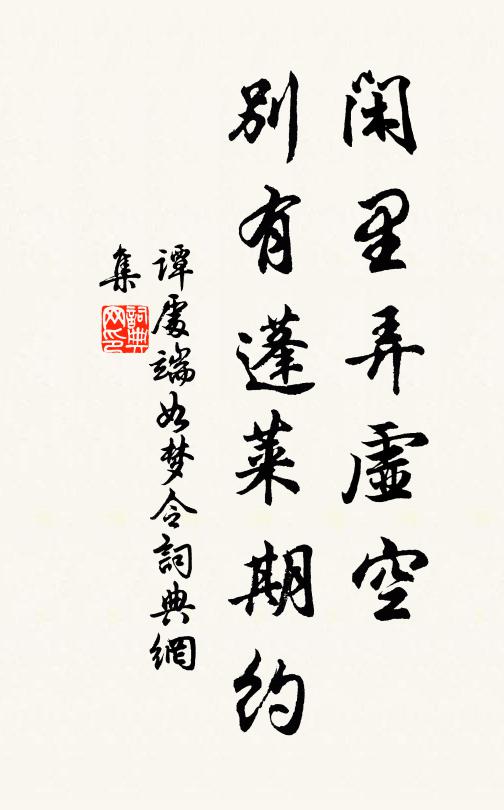 闲里弄虚空
别有蓬莱期约
谭处端如梦令詞典網
集
詞典
网印